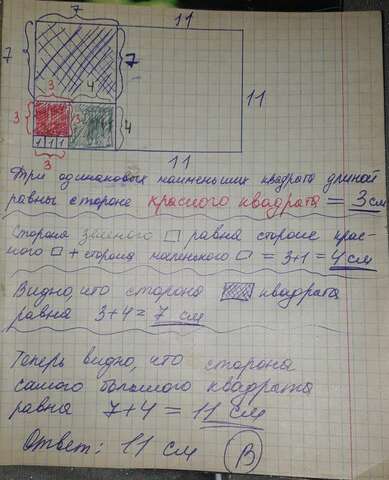 7
11
7
7
3
4
11
3
3
4
1 1 1
3
11
Три одинаковых наименьших квадрата длиной
равны стороне красного квадрата = 3 см
Сторона зеленого □ равна стороне крас-
ного □ + сторона маленького □ = 3+1 = 4 см
Видно, что сторона квадрата
равна 3+4 = 7 см
Теперь видно, что сторона
самого большого квадрата
равна 7+4 = 11 см
Ответ: 11 см В